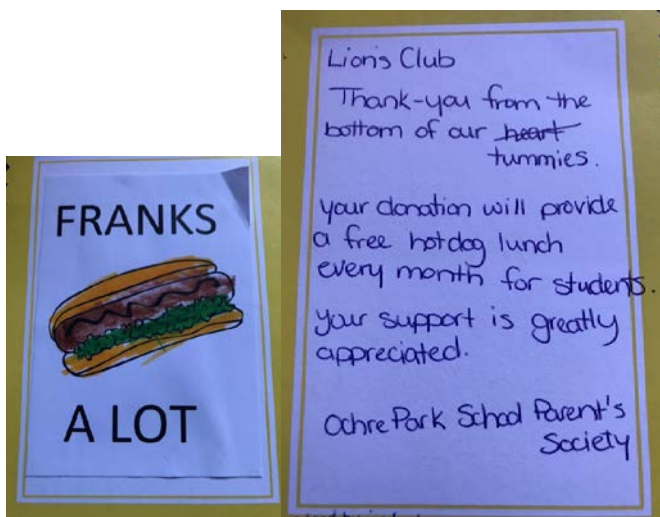 FRANKS
A LOT
Lions Club
Thank-you from the
bottom of our heart
tummies.
your donation will provide
a free hotdog lunch
every month for students.
Your support is greatly
appreciated.
Ochre Park School Parent's
Society